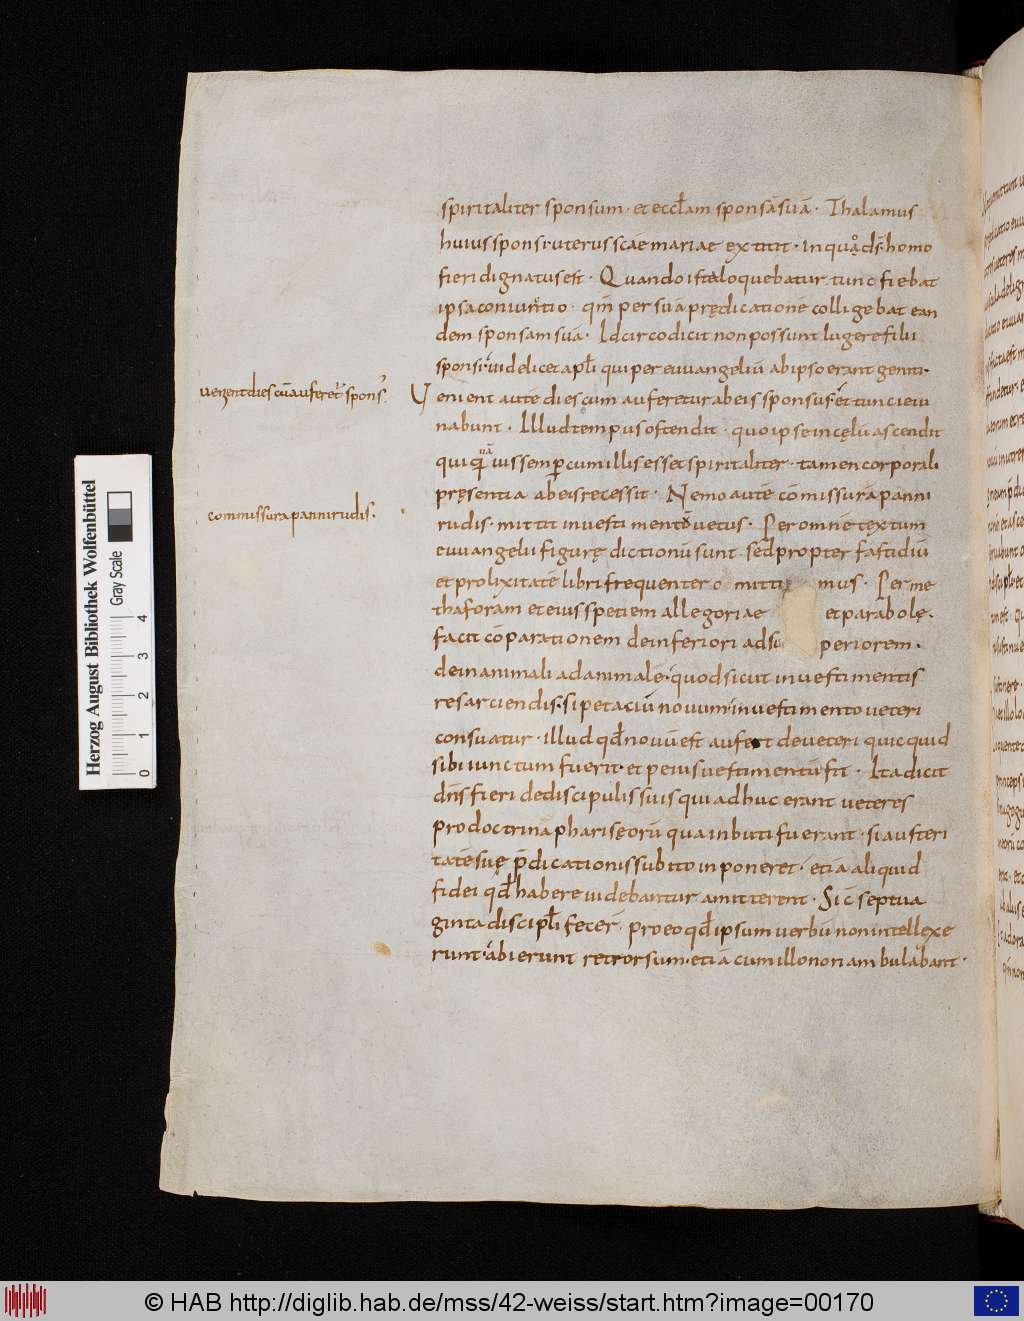 spiritaliter sponsum · et ecclam sponsāsuā · Thalamus
huius sponsi uterus scae mariae extitit · in quo ds homo
fieri dignatus est · Quando ista loquebatur tunc fiebat
ipsa coniunctio · qm per suā prędicationē colligebat ean
dem sponsam suā · Idcirco dicit non possunt lugere filii
sponsi videlicet apli qui per euuangeliū ab ipso erant geniti ·
uenient dies cū auferet spons
Venient autē dies cum auferetur ab eis sponsus et tunc ieiu
nabunt · Illud tempus ostendit · quo ipse in cęlū ascendit
qui quāuis semper cum illis esset spiritaliter · tamen corporali
pręsentia ab eis recessit · Nemo autē cōmissurā panni
commissura panni rudis ·
rudis · mittit in uestimentū uetus · Per omnē textum
euuangelii figurę dictionū sunt · sed propter fastidiū
et prolixitatē libri frequenter omittimus · Per me
thaforam et eius spetiem allegoriae et parabolę ·
facit cōparationem de inferiori ad superiorem ·
de inanimali ad animalē · quod sicut in uestimentis
resarciendis · si petaciū nouum in uestimento ueteri
consuatur · illud qd nouū est aufert de ueteri quicquid
sibi iunctum fuerit · et peius uestimentū fit · Ita dicit
dns fieri de discipulis suis qui adhuc erant ueteres
pro doctrina pharisęorū qua inbuti fuerant · si austeri
tatē suę p̄dicationis subito inponeret · etiā aliquid
fidei qd habere uidebantur amitterent · Sic septua
ginta discipli fecer · pro eo qd ipsum uerbū non intellexe
runt · abierunt retrorsum · etiā cum illo non iam bulabant ·
Herzog August Bibliothek Wolfenbüttel
Gray Scale
0 1 2 3 4
© HAB http://diglib.hab.de/mss/42-weiss/start.htm?image=00170